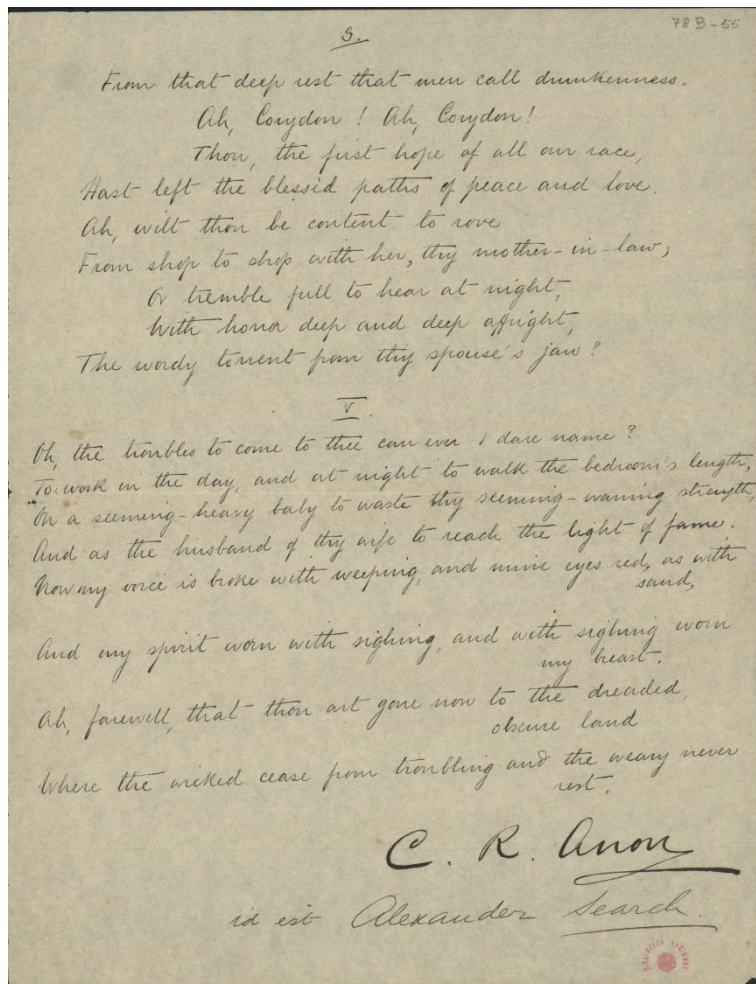 78B-55
3.
From that deep rest that men call drunkenness.
Ah, Corydon! Ah, Corydon!
Thou, the first hope of all our race,
Hast left the blessèd paths of peace and love.
Ah, wilt thou be content to rove
From shop to shop with her, thy mother-in-law,
Or tremble full to hear at night,
With horror deep and deep affright,
The wordy torrent from thy spouse's jaw?
V.
Oh, the troubles to come to thee can ever I dare name?
To work in the day, and at night to walk the bedroom's length,
On a seeming-heavy baby to waste thy seeming-waning strength,
And as the husband of thy wife to reach the light of fame.
Now my voice is broke with weeping, and mine eyes red, as with
sand,
And my spirit worn with sighing, and with sighing worn
my breast.
Ah, farewell, that thou art gone now to the dreaded,
obscure land
Where the wicked cease from troubling and the weary never
rest.
C. R. Anon
id est Alexander Search.